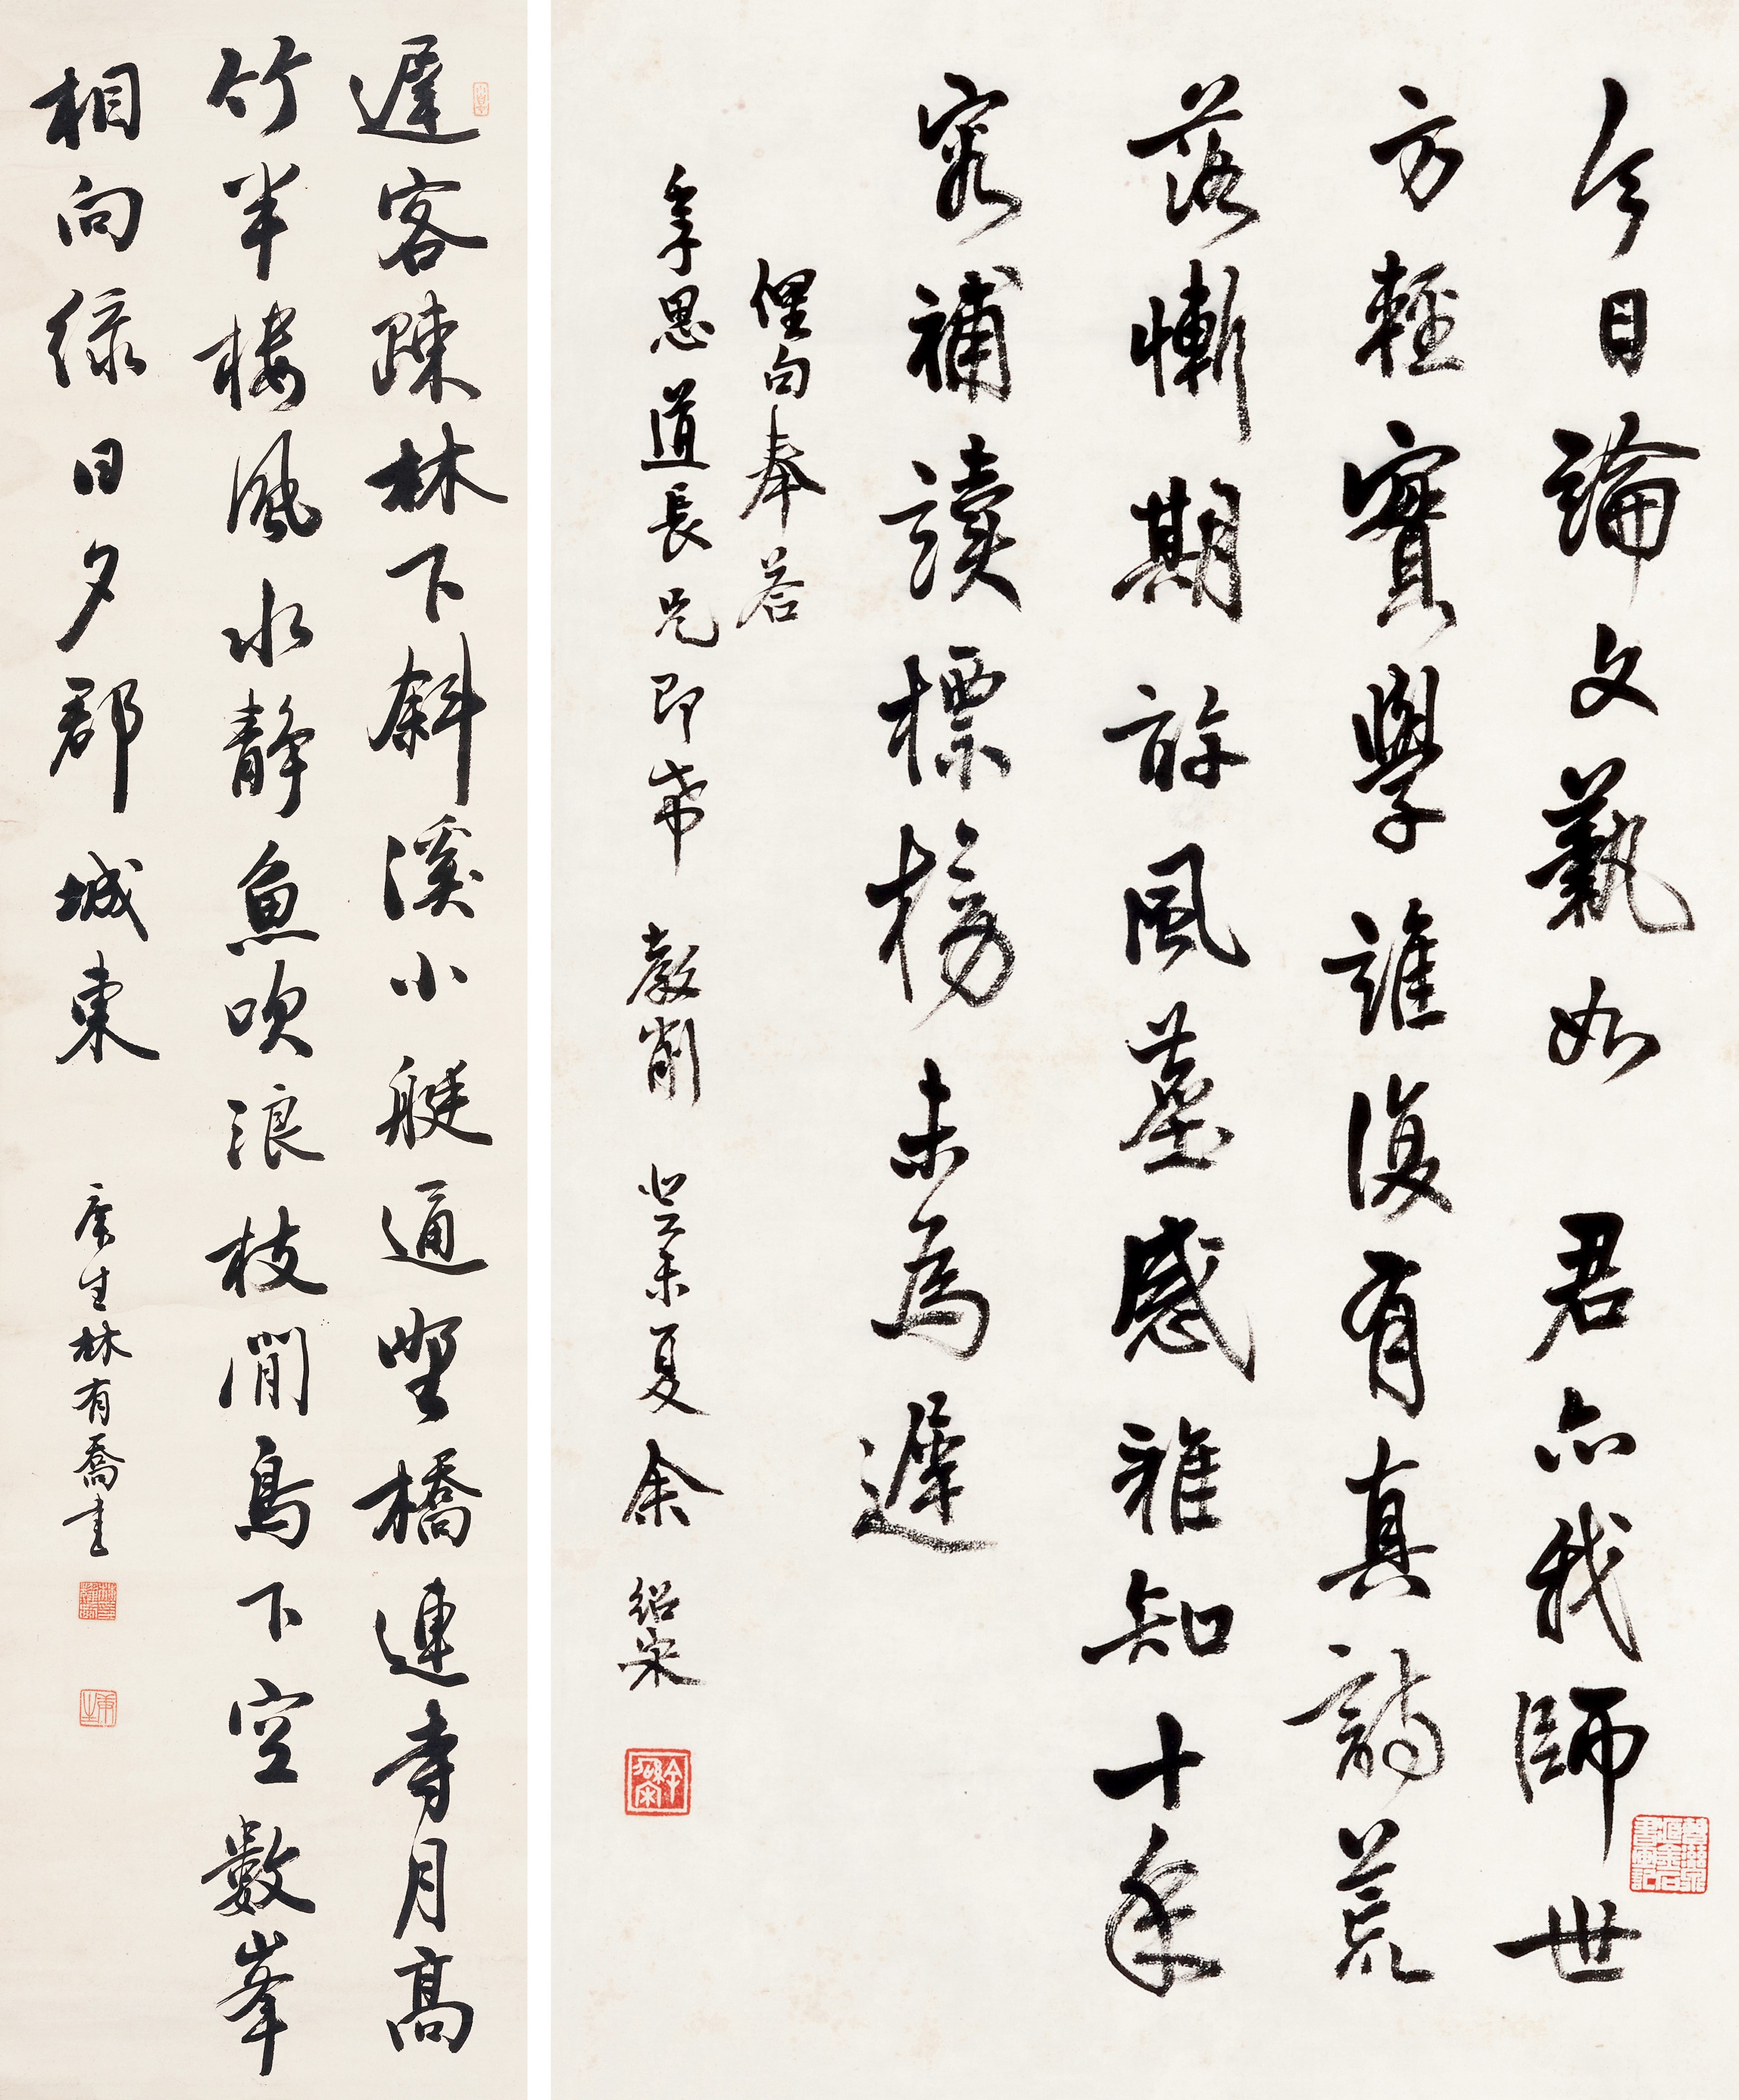 今日論文藝如君亦我師世
方輕實學誰復有真詩荒
落慚期許風塵感雅知十年
容補讀標榜未為遲
俚句奉答
孝思道長兄即希 教削 癸未夏 余紹宋
余紹宋
遲客疎林下斜溪小艇通野橋連寺月高
竹半樓風水靜魚吹浪枝閒鳥下空數峯
相向綠日夕郡城東
庚生林有喬書